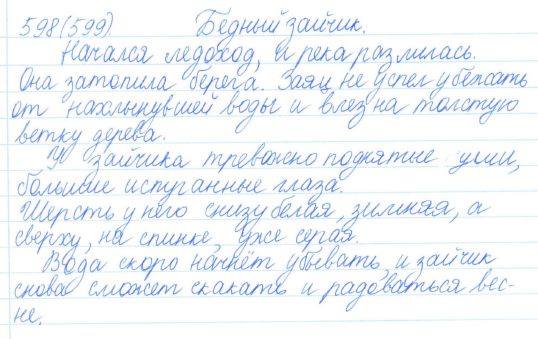 598(599) Бедный зайчик.
Начался ледоход, и река разлилась.
Она затопила берега. Заяц не успел убежать
от нахлынувшей воды и влез на толстую
ветку дерева.
У зайчика тревожно поднятые уши,
большие испуганные глаза.
Шерсть у него снизу белая, зимняя, а
сверху, на спинке, уже серая.
Вода скоро начнёт убывать, и зайчик
снова сможет скакать и радоваться вес-
не.